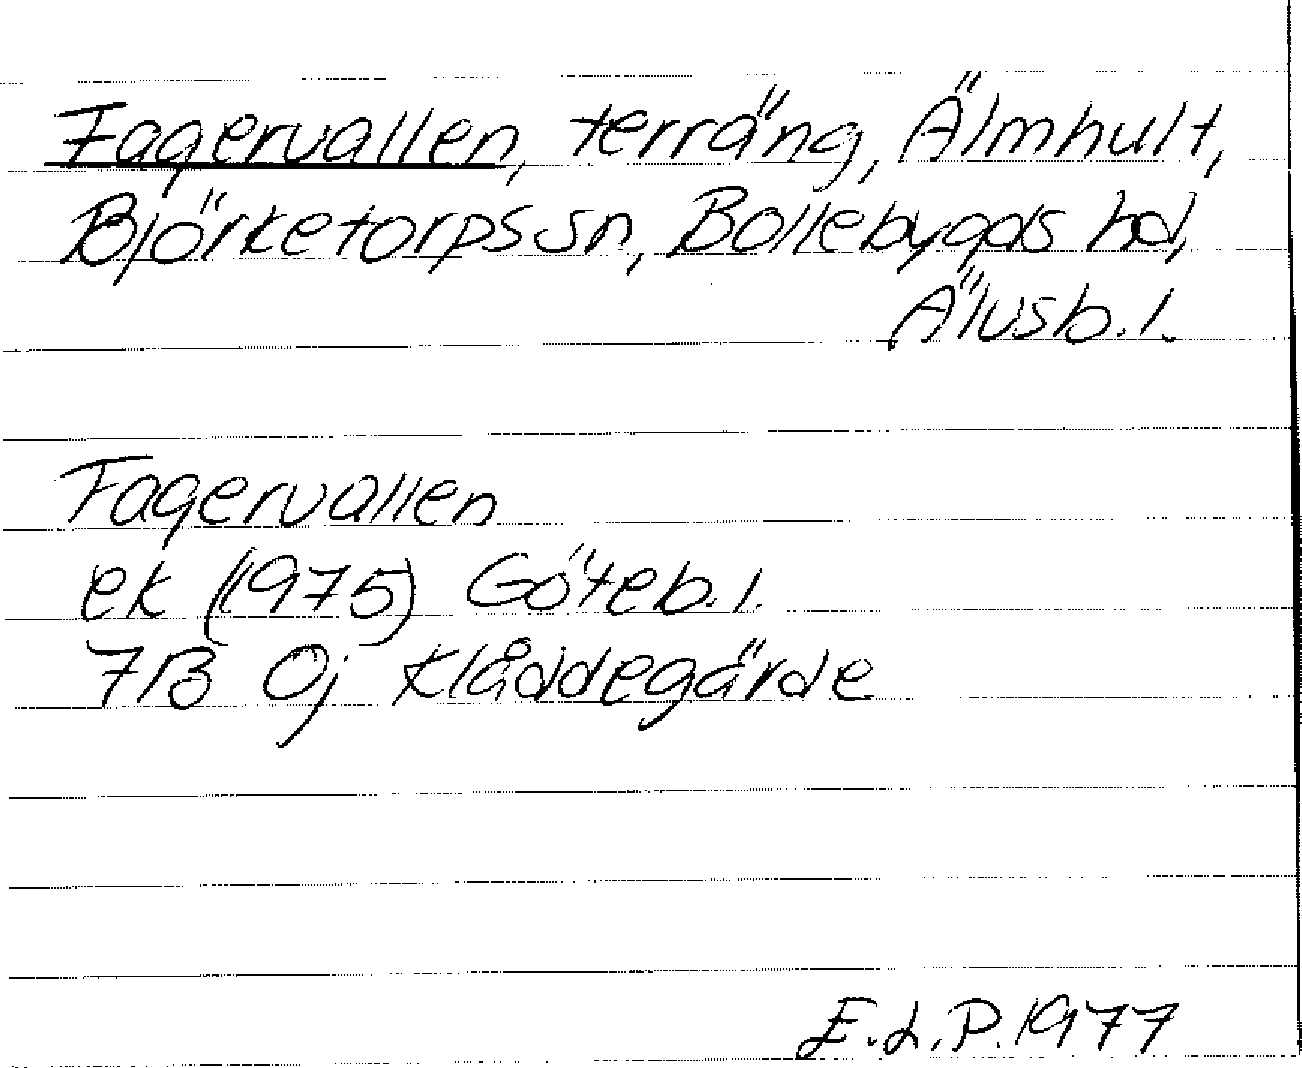 Fagervallen, terräng, Älmhult,
Björketorps sn, Bollebygds hd,
Älvsb. l.
Fagervallen
ek (1975) Göteb. l.
7B 0j Klåddegärde
E.L.P. 1977